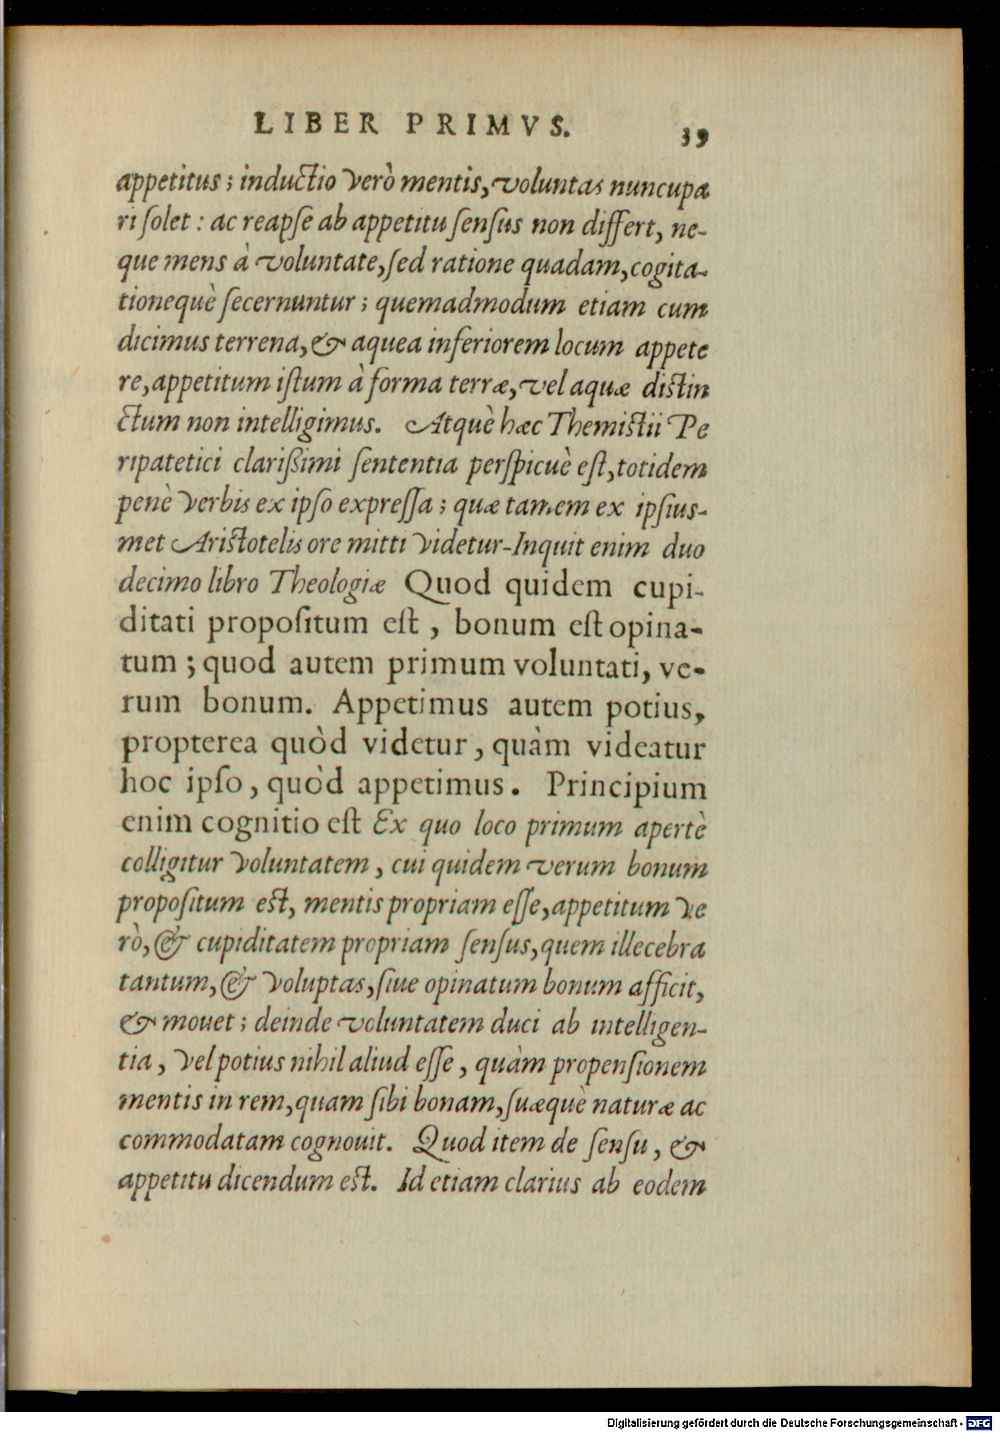 LIBER PRIMVS. 39
appetitus; inductio verò mentis, voluntas nuncupa
ri solet: ac reapse ab appetitu sensus non differt, ne-
que mens à voluntate, sed ratione quadam, cogita-
tionequè secernuntur; quemadmodum etiam cum
dicimus terrena, & aquea inferiorem locum appete
re, appetitum istum à forma terræ, vel aquæ distin
ctum non intelligimus. Atquè hæc Themistii Pe
ripatetici clarißimi sententia perspicuè est, totidem
penè verbis ex ipso expressa; quæ tamem ex ipsius-
met Aristotelis ore mitti videtur-Inquit enim duo
decimo libro Theologiæ Quod quidem cupi-
ditati propositum est, bonum est opina-
tum; quod autem primum voluntati, ve-
rum bonum. Appetimus autem potius,
propterea quòd videtur, quàm videatur
hoc ipso, quòd appetimus. Principium
enim cognitio est Ex quo loco primum apertè
colligitur voluntatem, cui quidem verum bonum
propositum est, mentis propriam esse, appetitum ve
rò, & cupiditatem propriam sensus, quem illecebra
tantum, & voluptas, siue opinatum bonum afficit,
& mouet; deinde voluntatem duci ab intelligen-
tia, vel potius nihil aliud esse, quàm propensionem
mentis in rem, quam sibi bonam, suæquè naturæ ac
commodatam cognouit. Quod item de sensu, &
appetitu dicendum est. Id etiam clarius ab eodem
Digitalisierung gefördert durch die Deutsche Forschungsgemeinschaft - DFG